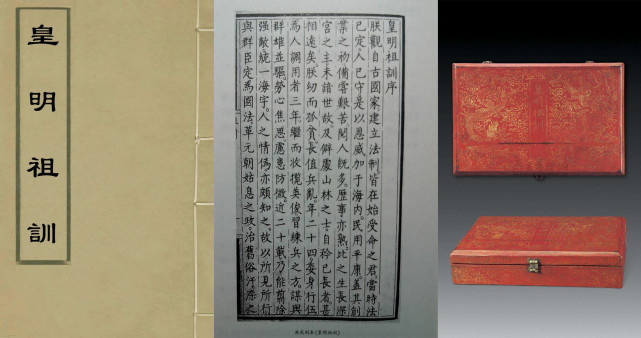 皇明祖訓
皇明祖訓序
朕觀自古國家建立法制皆在始受命之君當時法
已定人已守是以恩威加于海內民用平康蓋其創
業之初備嘗艱苦閱人既多歷事亦熟比之生長深
宮之主未諳世故及僻處山林之士自矜己長者甚
相遠矣朕幼而孤貧長值兵亂年二十四委身行伍
為人調用者三年繼而收攬英俊習練兵之方謀與
群雄並驅勞心焦思慮患防微近二十載乃能翦除
強敵統一海宇人之情偽亦頗知之故以所見所行
與群臣定為國法革元朝姑息之政治舊俗汙染之
洪武刻本《皇明祖訓》